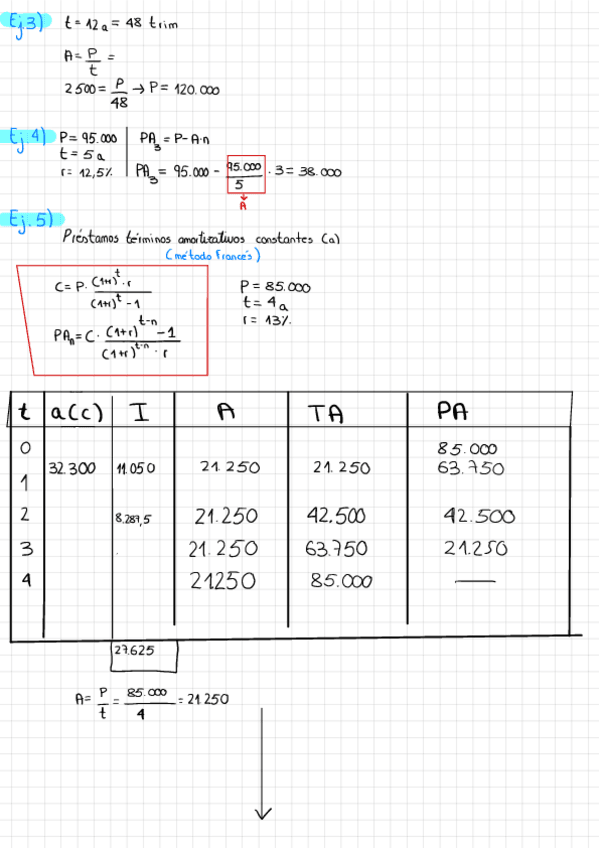 Ej 3) t = 12 a = 48 trim
A = P/t =
2500 = P/48 → P = 120.000
Ej. 4) P = 95.000 PA₃ = P - A·n
t = 5 a
r = 12,5% PA₃ = 95.000 - 95.000/5 · 3 = 38.000
A
Ej. 5)
Préstamos términos amortizativos constantes (a)
(método Francés)
C = P · (1+r)^t · r / (1+r)^t - 1
P = 85.000
t = 4 a
r = 13%
PAₙ = C · (1+r)^t-n - 1 / (1+r)^t-n · r
t a(c) I A TA PA
0 85.000
1 32.300 11.050 21.250 21.250 63.750
2 8.287,5 21.250 42.500 42.500
3 21.250 63.750 21.250
4 21250 85.000 —
27.625
A = P/t = 85.000/4 = 21250